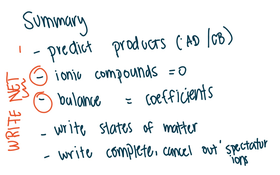 Summary
- predict products (AD/CB)
- ionic compounds = 0
- balance = coefficients
- write states of matter
- write complete, cancel out spectator ions
WRITE NET